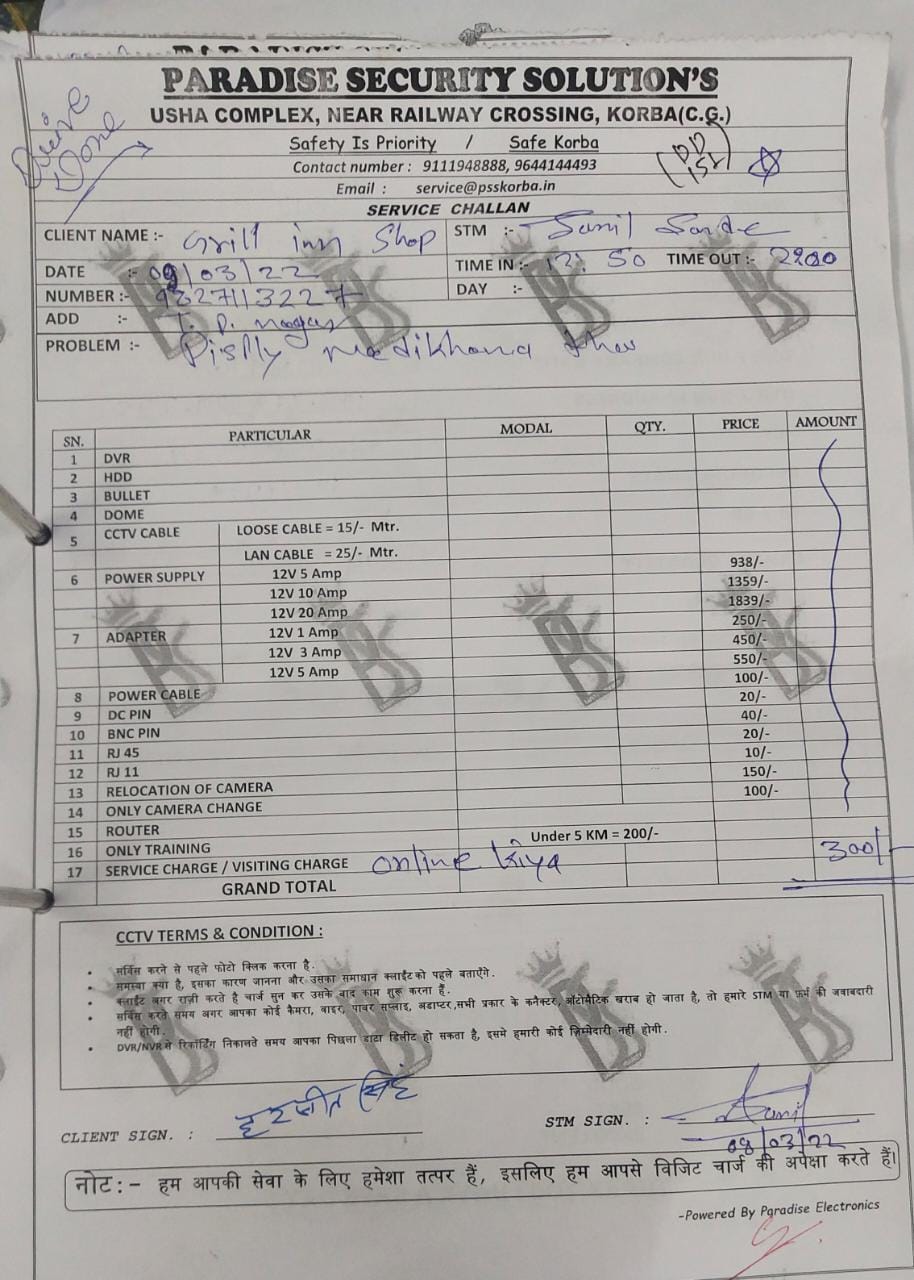 Drive
Done
PARADISE SECURITY SOLUTION'S
USHA COMPLEX, NEAR RAILWAY CROSSING, KORBA(C.G.)
Safety Is Priority / Safe Korba
Contact number : 9111948888, 9644144493
Email : service@psskorba.in
SERVICE CHALLAN
CLIENT NAME :- Grill inn Shop STM :- Sunil
DATE :- 09/03/22 TIME IN :- 12:50 TIME OUT :-
NUMBER :- 9827113227 DAY :-
ADD :- T. P. nagar
PROBLEM :-
SN. PARTICULAR MODAL QTY. PRICE AMOUNT
1 DVR
2 HDD
3 BULLET
4 DOME
5 CCTV CABLE LOOSE CABLE = 15/- Mtr.
LAN CABLE = 25/- Mtr.
6 POWER SUPPLY 12V 5 Amp 938/-
12V 10 Amp 1359/-
12V 20 Amp 1839/-
7 ADAPTER 12V 1 Amp 250/-
12V 3 Amp 450/-
12V 5 Amp 550/-
8 POWER CABLE 100/-
9 DC PIN 20/-
10 BNC PIN 40/-
11 RJ 45 20/-
12 RJ 11 10/-
13 RELOCATION OF CAMERA 150/-
14 ONLY CAMERA CHANGE 100/-
15 ROUTER
16 ONLY TRAINING Under 5 KM = 200/-
17 SERVICE CHARGE / VISITING CHARGE online kiya 300/-
GRAND TOTAL
CCTV TERMS & CONDITION :
• सर्विस करने से पहले फोटो क्लिक करना है.
• समस्या क्या है, इसका कारण जानना और उसका समाधान क्लाईंट को पहले बताएँगे.
• क्लाईंट अगर राज़ी करते है चार्ज सुन कर उसके बाद काम शुरू करना है.
• सर्विस करते समय अगर आपका कोई कैमरा, वाइर, पावर सप्लाइ, अडाप्टर,सभी प्रकार के कनैक्टर, ऑटोमैटिक खराब हो जाता है, तो हमारे STM या फ़र्म की जवाबदारी
नहीं होगी.
• DVR/NVR मे रिकॉर्डिंग निकालते समय आपका पिछला डाटा डिलीट हो सकता है, इसमे हमारी कोई ज़िम्मेदारी नहीं होगी.
CLIENT SIGN. : हरजीत सिंह STM SIGN. : Sunil
09/03/22
नोट:- हम आपकी सेवा के लिए हमेशा तत्पर हैं, इसलिए हम आपसे विजिट चार्ज की अपेक्षा करते हैं।
-Powered By Paradise Electronics